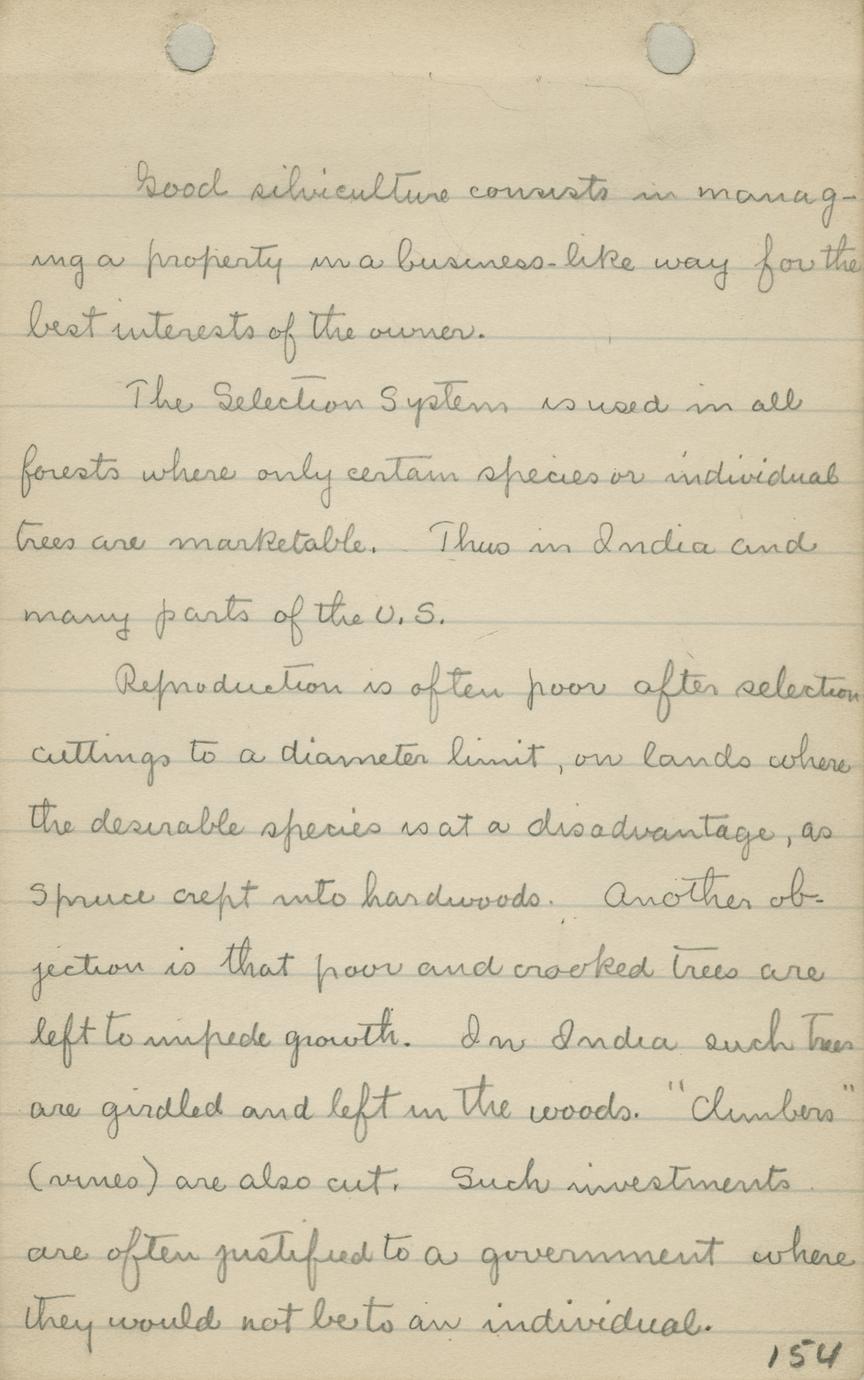 Good silviculture consists in manag-
ing a property in a business-like way for the
best interests of the owner.
The Selection System is used in all
forests where only certain species or individual
trees are marketable. Thus in India and
many parts of the U.S.
Reproduction is often poor after selection
cuttings to a diameter limit, on lands where
the desirable species is at a disadvantage, as
spruce crept into hardwoods. Another ob-
jection is that poor and crooked trees are
left to impede growth. In India such trees
are girdled and left in the woods. "Climbers"
(vines) are also cut. Such investments
are often justified to a government where
they would not be to an individual.
154